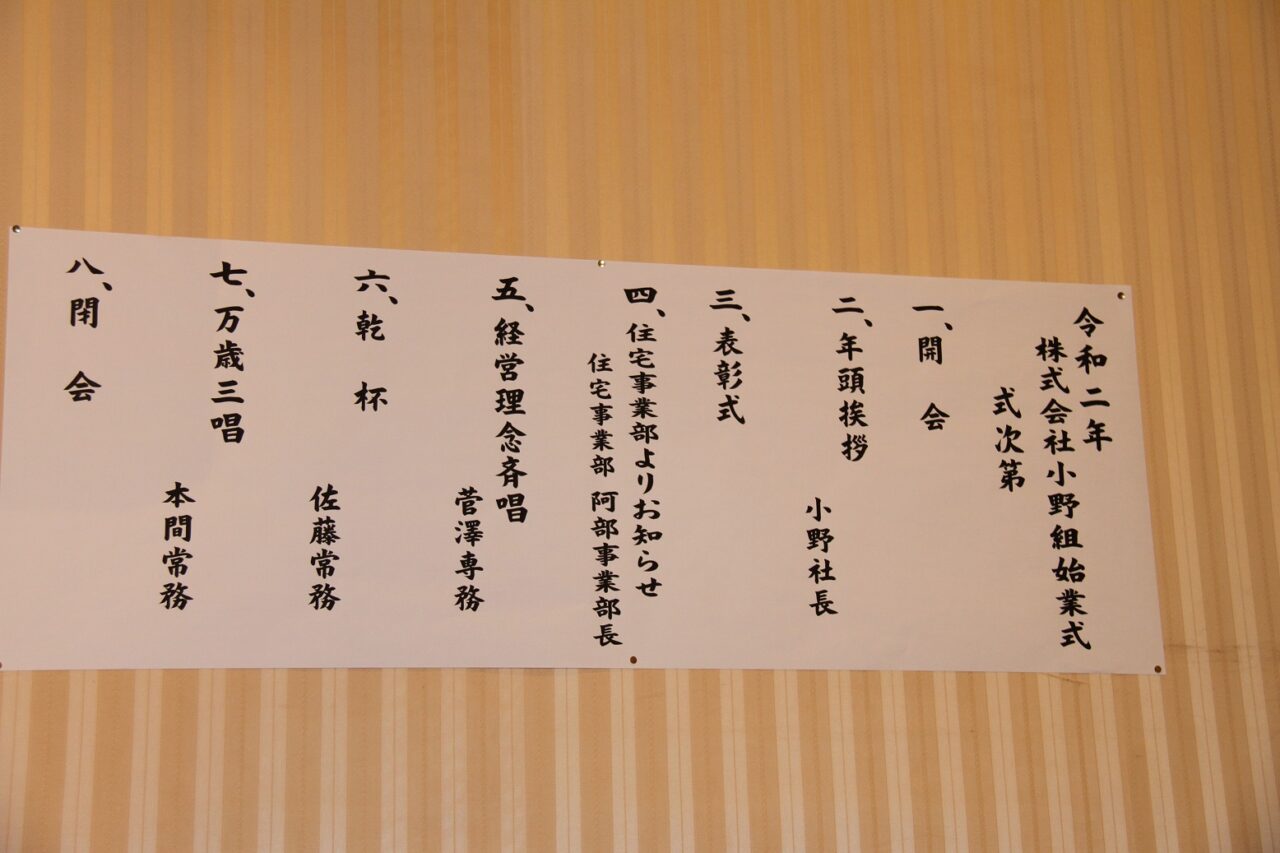 令和二年
株式会社小野組始業式
式次第
一、開 会
二、年頭挨拶
小野社長
三、表彰式
四、住宅事業部よりお知らせ
住宅事業部 阿部事業部長
五、経営理念斉唱
菅澤専務
六、乾 杯
佐藤常務
七、万歳三唱
本間常務
八、閉 会